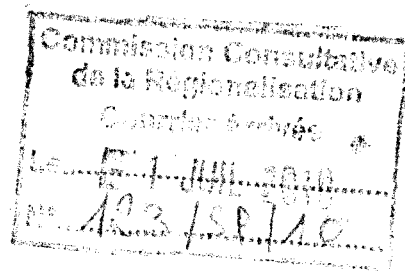 Commission Consultative
de la Régionalisation
Courrier Arrivée
Le 1 JUIL 2010
N° 123/SP/10